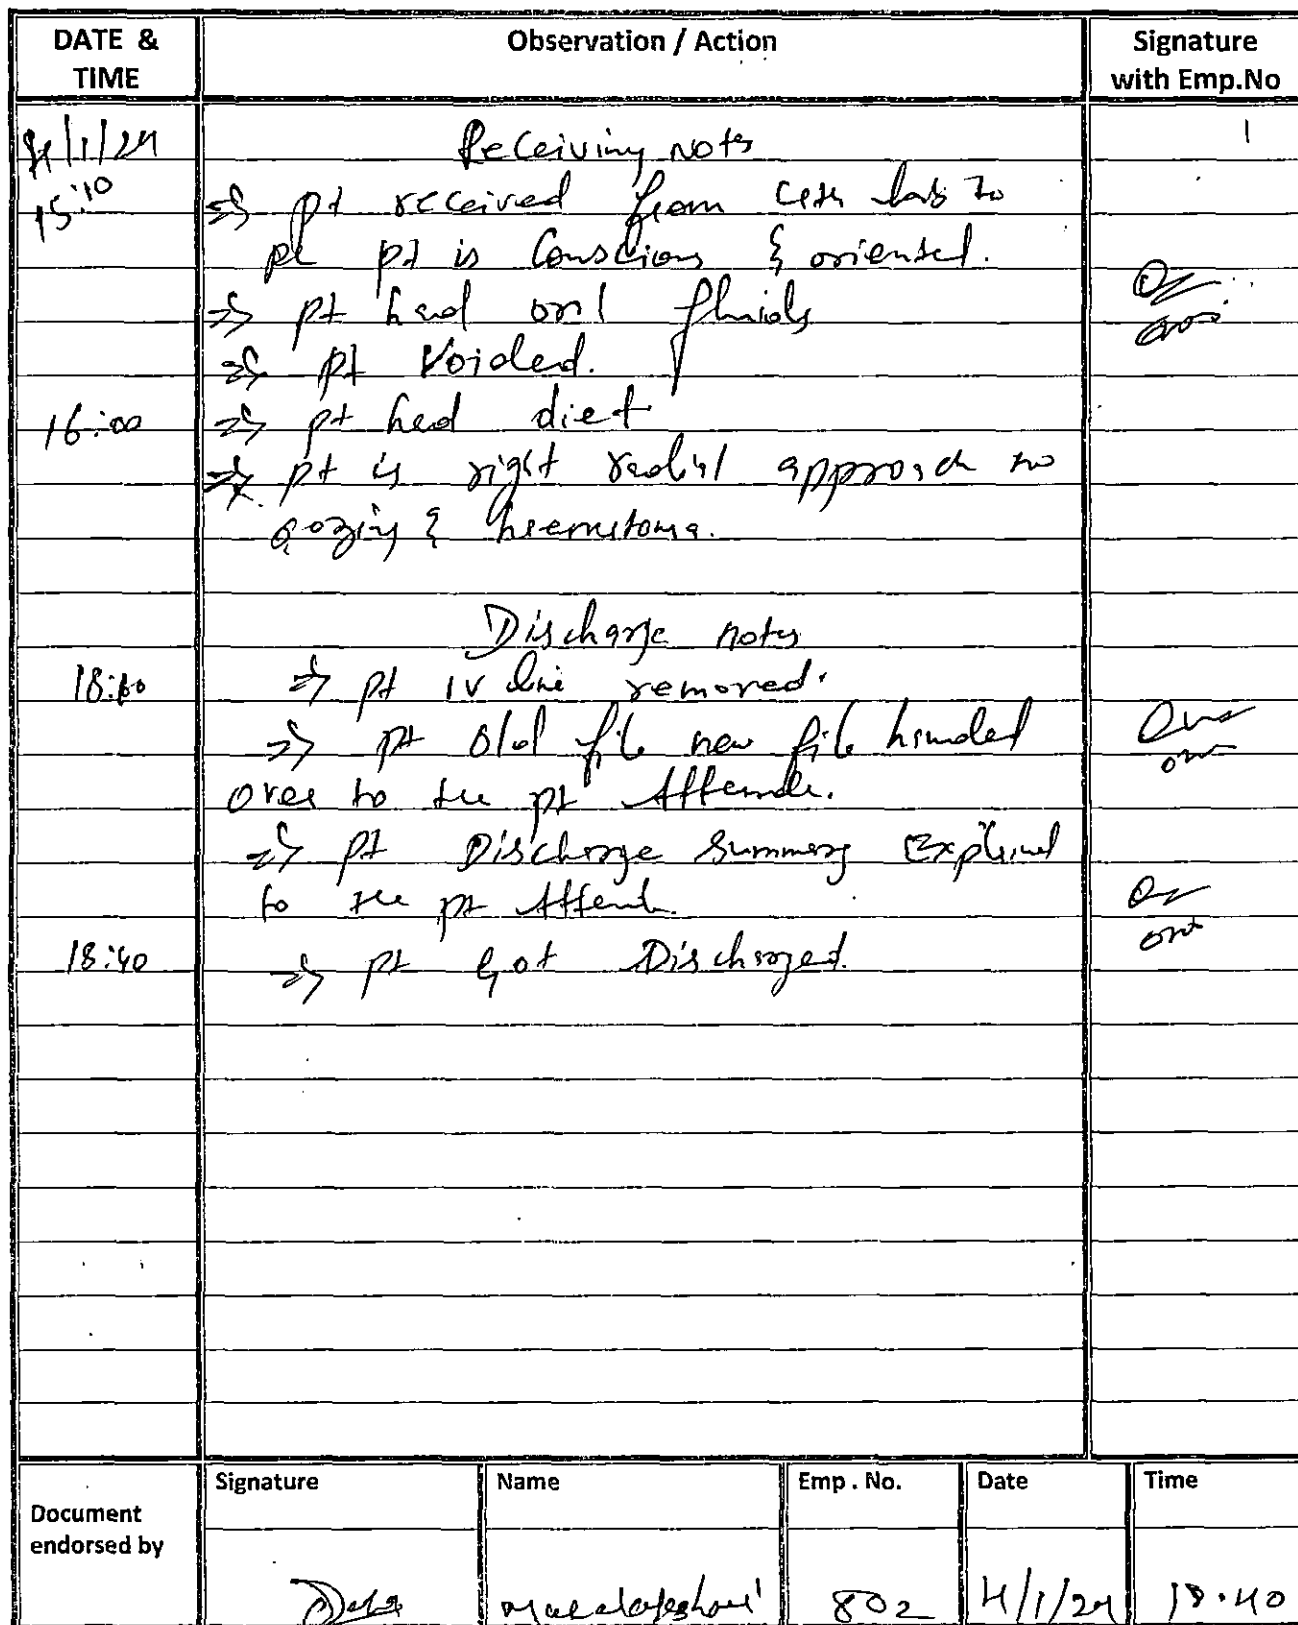 DATE & TIME Observation / Action Signature with Emp.No
4/1/24 Receiving Notes
15:10 => pt received from Cath lab to
pt is Conscious & oriented.
=> pt had oral fluids
=> pt Voided.
16:00 => pt had diet
=> pt is right radial approach no
oozing & haematoma.
Discharge notes
=> pt IV line removed.
=> pt old file new file handed
over to the pt Attender.
=> pt Discharge Summary Explained
to the pt Attender.
18:40 => pt Got Discharged.
Document endorsed by Signature Name Emp . No. Date Time
802 4/1/24 18.40